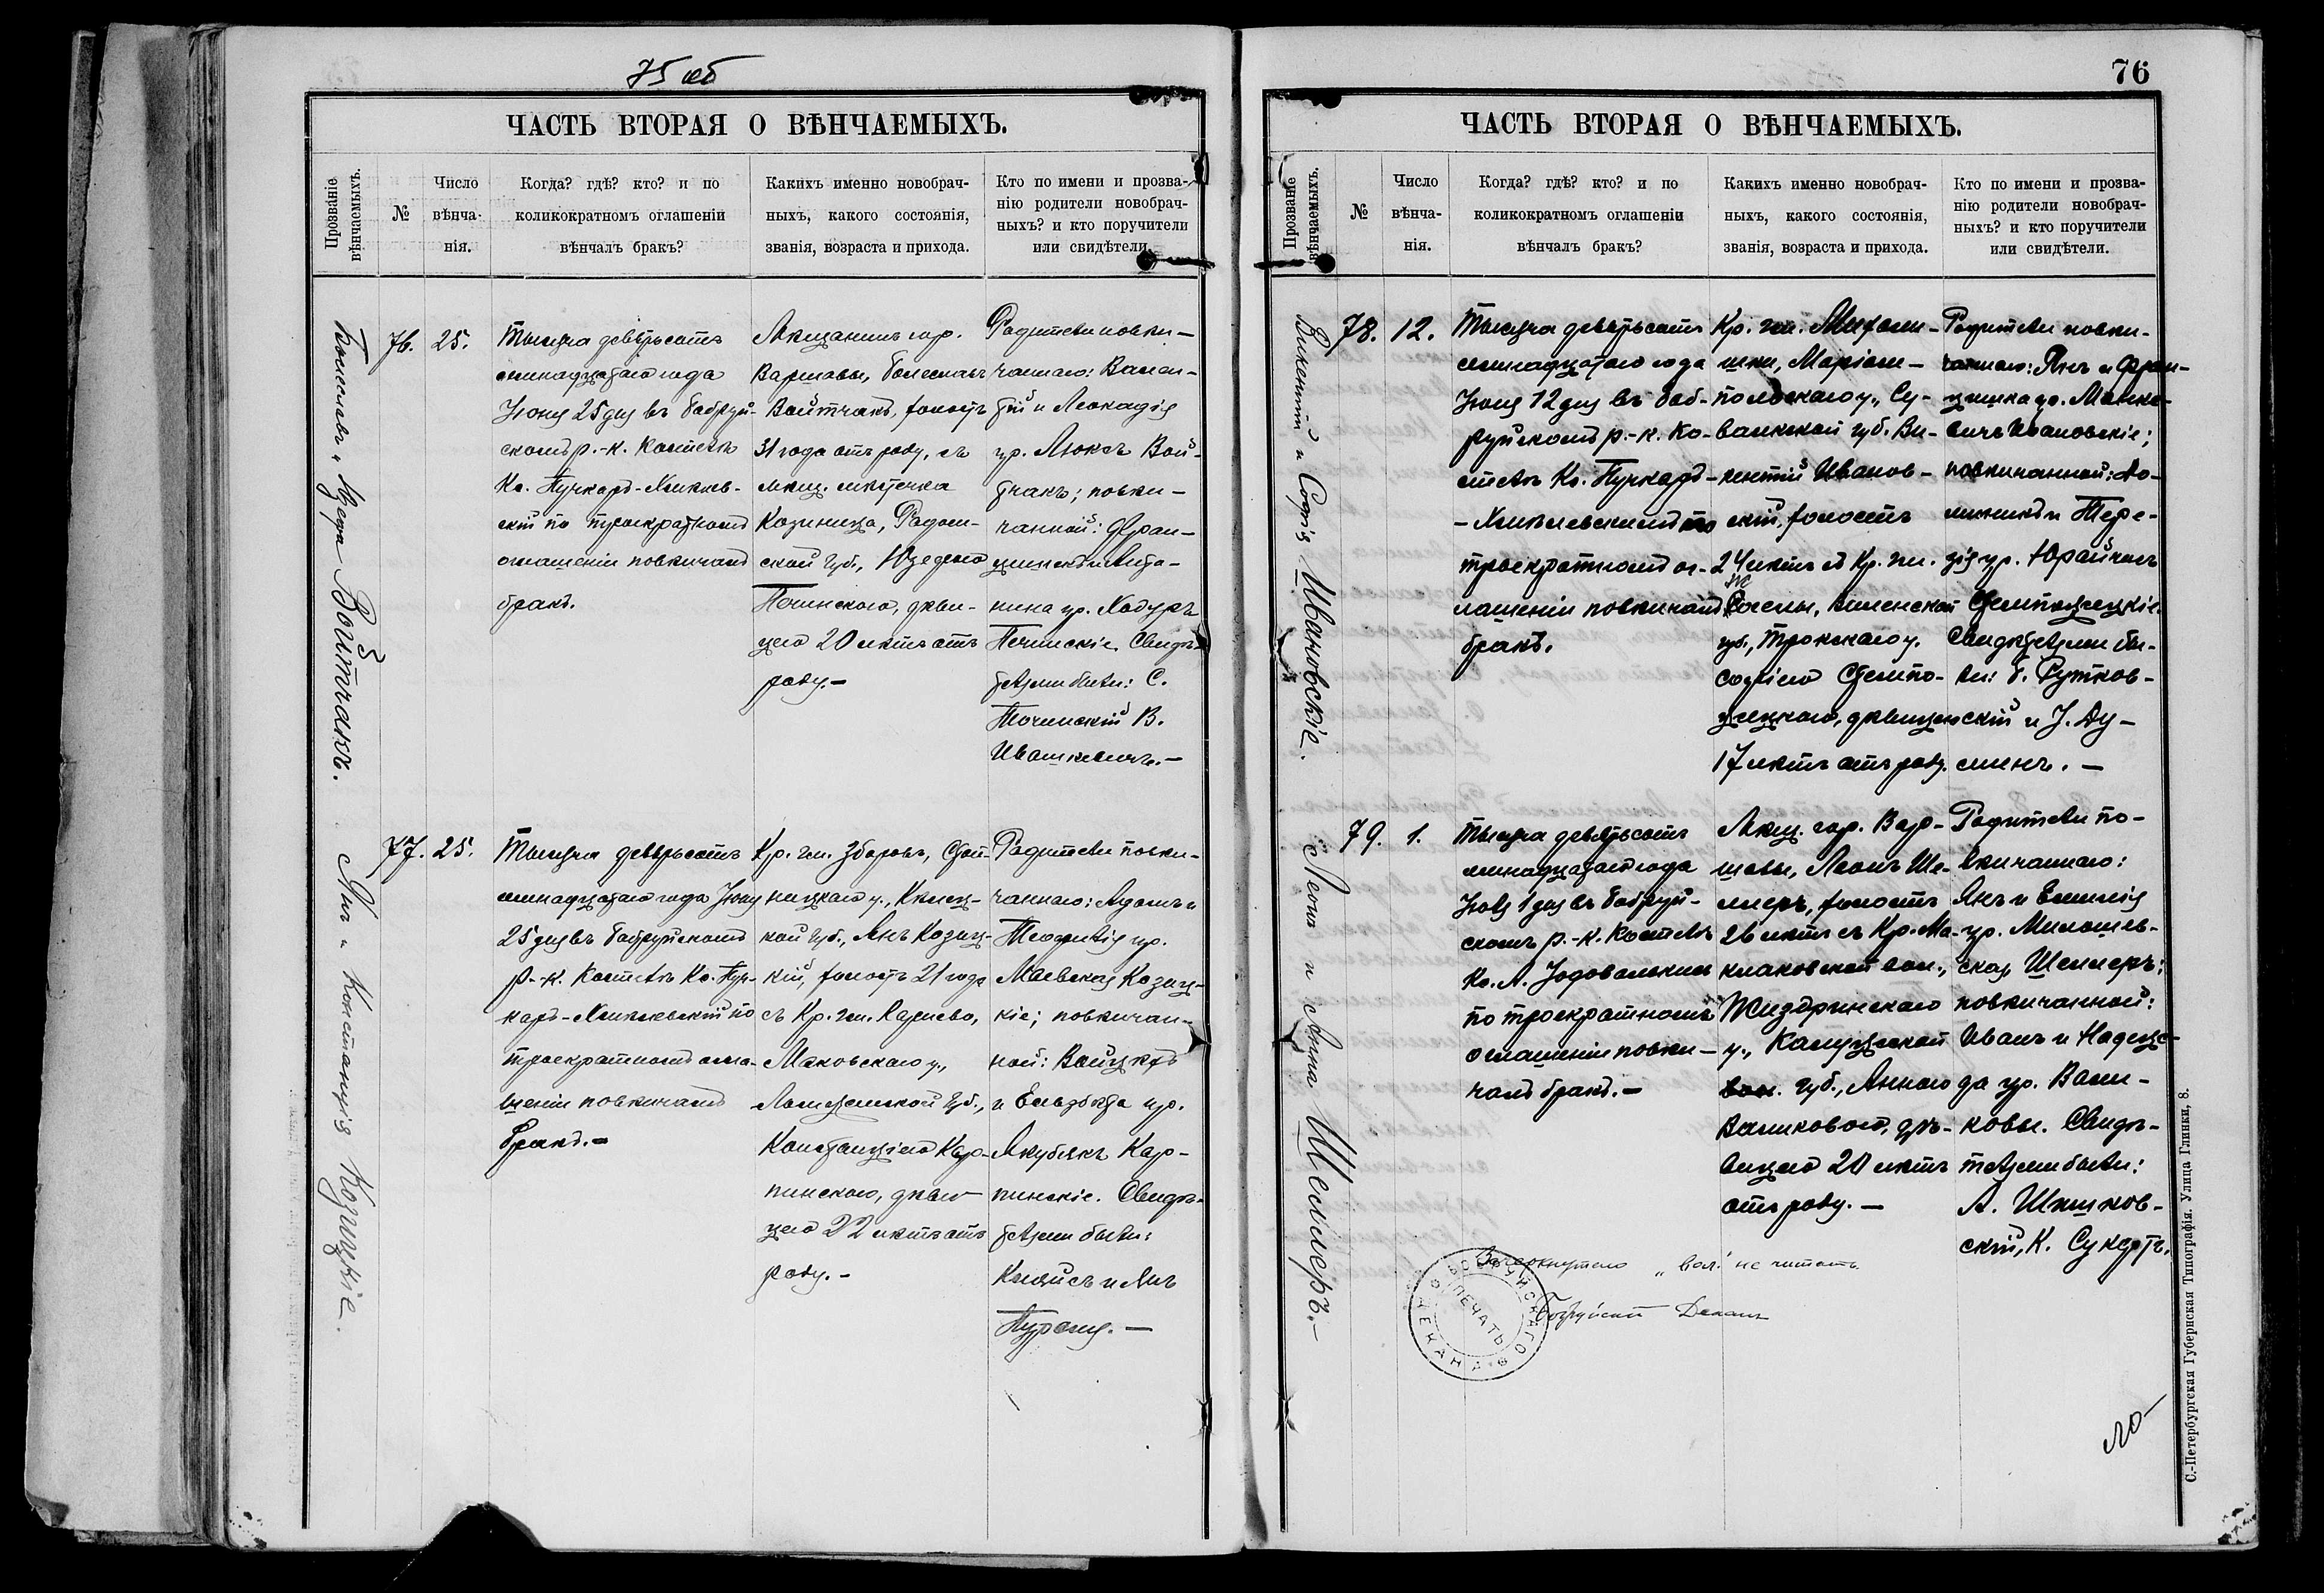 75 об
ЧАСТЬ ВТОРАЯ О ВѢНЧАЕМЫХЪ.
Прозваніе
вѣнчаемыхъ.
№
Число
вѣнча-
нія.
Когда? гдѣ? кто? и по
коликократномъ оглашеніи
вѣнчалъ бракъ?
Какихъ именно новобрач-
ныхъ, какого состоянія,
званія, возраста и прихода.
Кто по имени и прозва-
нію родители новобрач-
ныхъ? и кто поручители
или свидѣтели.
Войтчакъ.
76.
25.
Тысяча девятьсотъ
года
Іюня 25 дня въ Бобруй-
скомъ р.-к. Костелѣ
Кс. Пучкаръ-Хмѣлев-
скій по троекратномъ
оглашеніи повѣнчалъ
бракъ.
Мѣщанинъ гор.
Варшавы, Болеславъ
Войтчакъ, холостъ
31 года отъ роду, съ
мѣщ. мѣстечка
Радом-
ской губ.,
дѣви-
цею 20 лѣтъ отъ
роду.-
Родители повѣн-
чаннаго: Вален-
тій и Леокадія
ур. Люксъ Вой-
тчакъ; повѣн-
чанной: Фран-
цишекъ и Анто-
нина ур.
Свидѣ-
телями были: С.
В.
Ивашкевичъ.-
Янъ и Констанція Козицкіе.
77.
25.
Тысяча девятьсотъ
года Іюня
25 дня въ Бобруйскомъ
р.-к. Костелѣ Кс. Пуч-
каръ-Хмѣлевскій по
троекратномъ огла-
шеніи повѣнчалъ
бракъ.-
Кр. гм. Зборовъ, Стоп-
ницкаго у., Кѣлец-
кой губ., Янъ Козиц-
кій, холостъ 21 года
съ Кр. гм.
Маковскаго у.,
Ломжинской губ.,
Констанціею Кар-
пинскою, дѣви-
цею 22 лѣтъ отъ
роду.-
Родители повѣн-
чаннаго: Адамъ и
Теофилія ур.
Маевская Козиц-
кіе; повѣнчан-
ной: Войцѣхъ
и Ельзбѣта ур.
Якубякъ Кар-
пинскіе. Свидѣ-
телями были:
и Янъ
76
ЧАСТЬ ВТОРАЯ О ВѢНЧАЕМЫХЪ.
Прозваніе
вѣнчаемыхъ.
№
Число
вѣнча-
нія.
Когда? гдѣ? кто? и по
коликократномъ оглашеніи
вѣнчалъ бракъ?
Какихъ именно новобрач-
ныхъ, какого состоянія,
званія, возраста и прихода.
Кто по имени и прозва-
нію родители новобрач-
ныхъ? и кто поручители
или свидѣтели.
Викентій и Софія Ивановскіе.
78.
12.
Тысяча девятьсотъ
года
Іюня 12 дня въ Боб-
руйскомъ р.-к. Ко-
стелѣ Кс. Пучкаръ-
-Хмѣлевскимъ по
троекратномъ ог-
лашеніи повѣнчанъ
бракъ.
Кр. гм.
Маріам-
польскаго у., Су-
валкской губ. Ви-
кентій Иванов-
скій, холостъ
24 лѣтъ съ Кр. гм.
Виленской
губ., Трокскаго у.
Софіею
дѣвицею
17 лѣтъ отъ роду.
Родители повѣн-
чаннаго: Янъ и Фран-
цишка ур. Манке-
вичъ Ивановскіе;
повѣнчанной: До-
миникъ и Тере-
зія ур.
Свидѣтелями бы-
ли: Б. Рутков-
скій и І. Ду-
минъ.-
Леонъ и Анна Шеллеръ.-
79.
1.
Тысяча девятьсотъ
года
Іюля 1 дня въ Бобруй-
скомъ р.-к. Костелѣ
Кс. А.
по троекратномъ
оглашеніи повѣн-
чалъ бракъ.-
Мѣщ. гор. Вар-
шавы, Леонъ Ше-
ллеръ, холостъ
26 лѣтъ съ Кр. Ма-
клаковской вол.,
Жиздринскаго
у., Калужской
вол. губ., Анною
Валиковою, дѣ-
вицею 20 лѣтъ
отъ роду.-
Родители по-
вѣнчаннаго:
Янъ и Емилія
ур. Милошев-
ская Шеллеръ;
повѣнчанной:
Иванъ и Надеж-
да ур. Вали-
ковы. Свидѣ-
телями были:
А. Шишков-
скій, К.
Зачеркнутое „вол.“ не читать
Бобруйскій Деканъ
ПЕЧАТЬ БОБРУЙСКАГО ДЕКАНА
С.-Петербургская Губернская Типографія. Улица Глинки, 8.